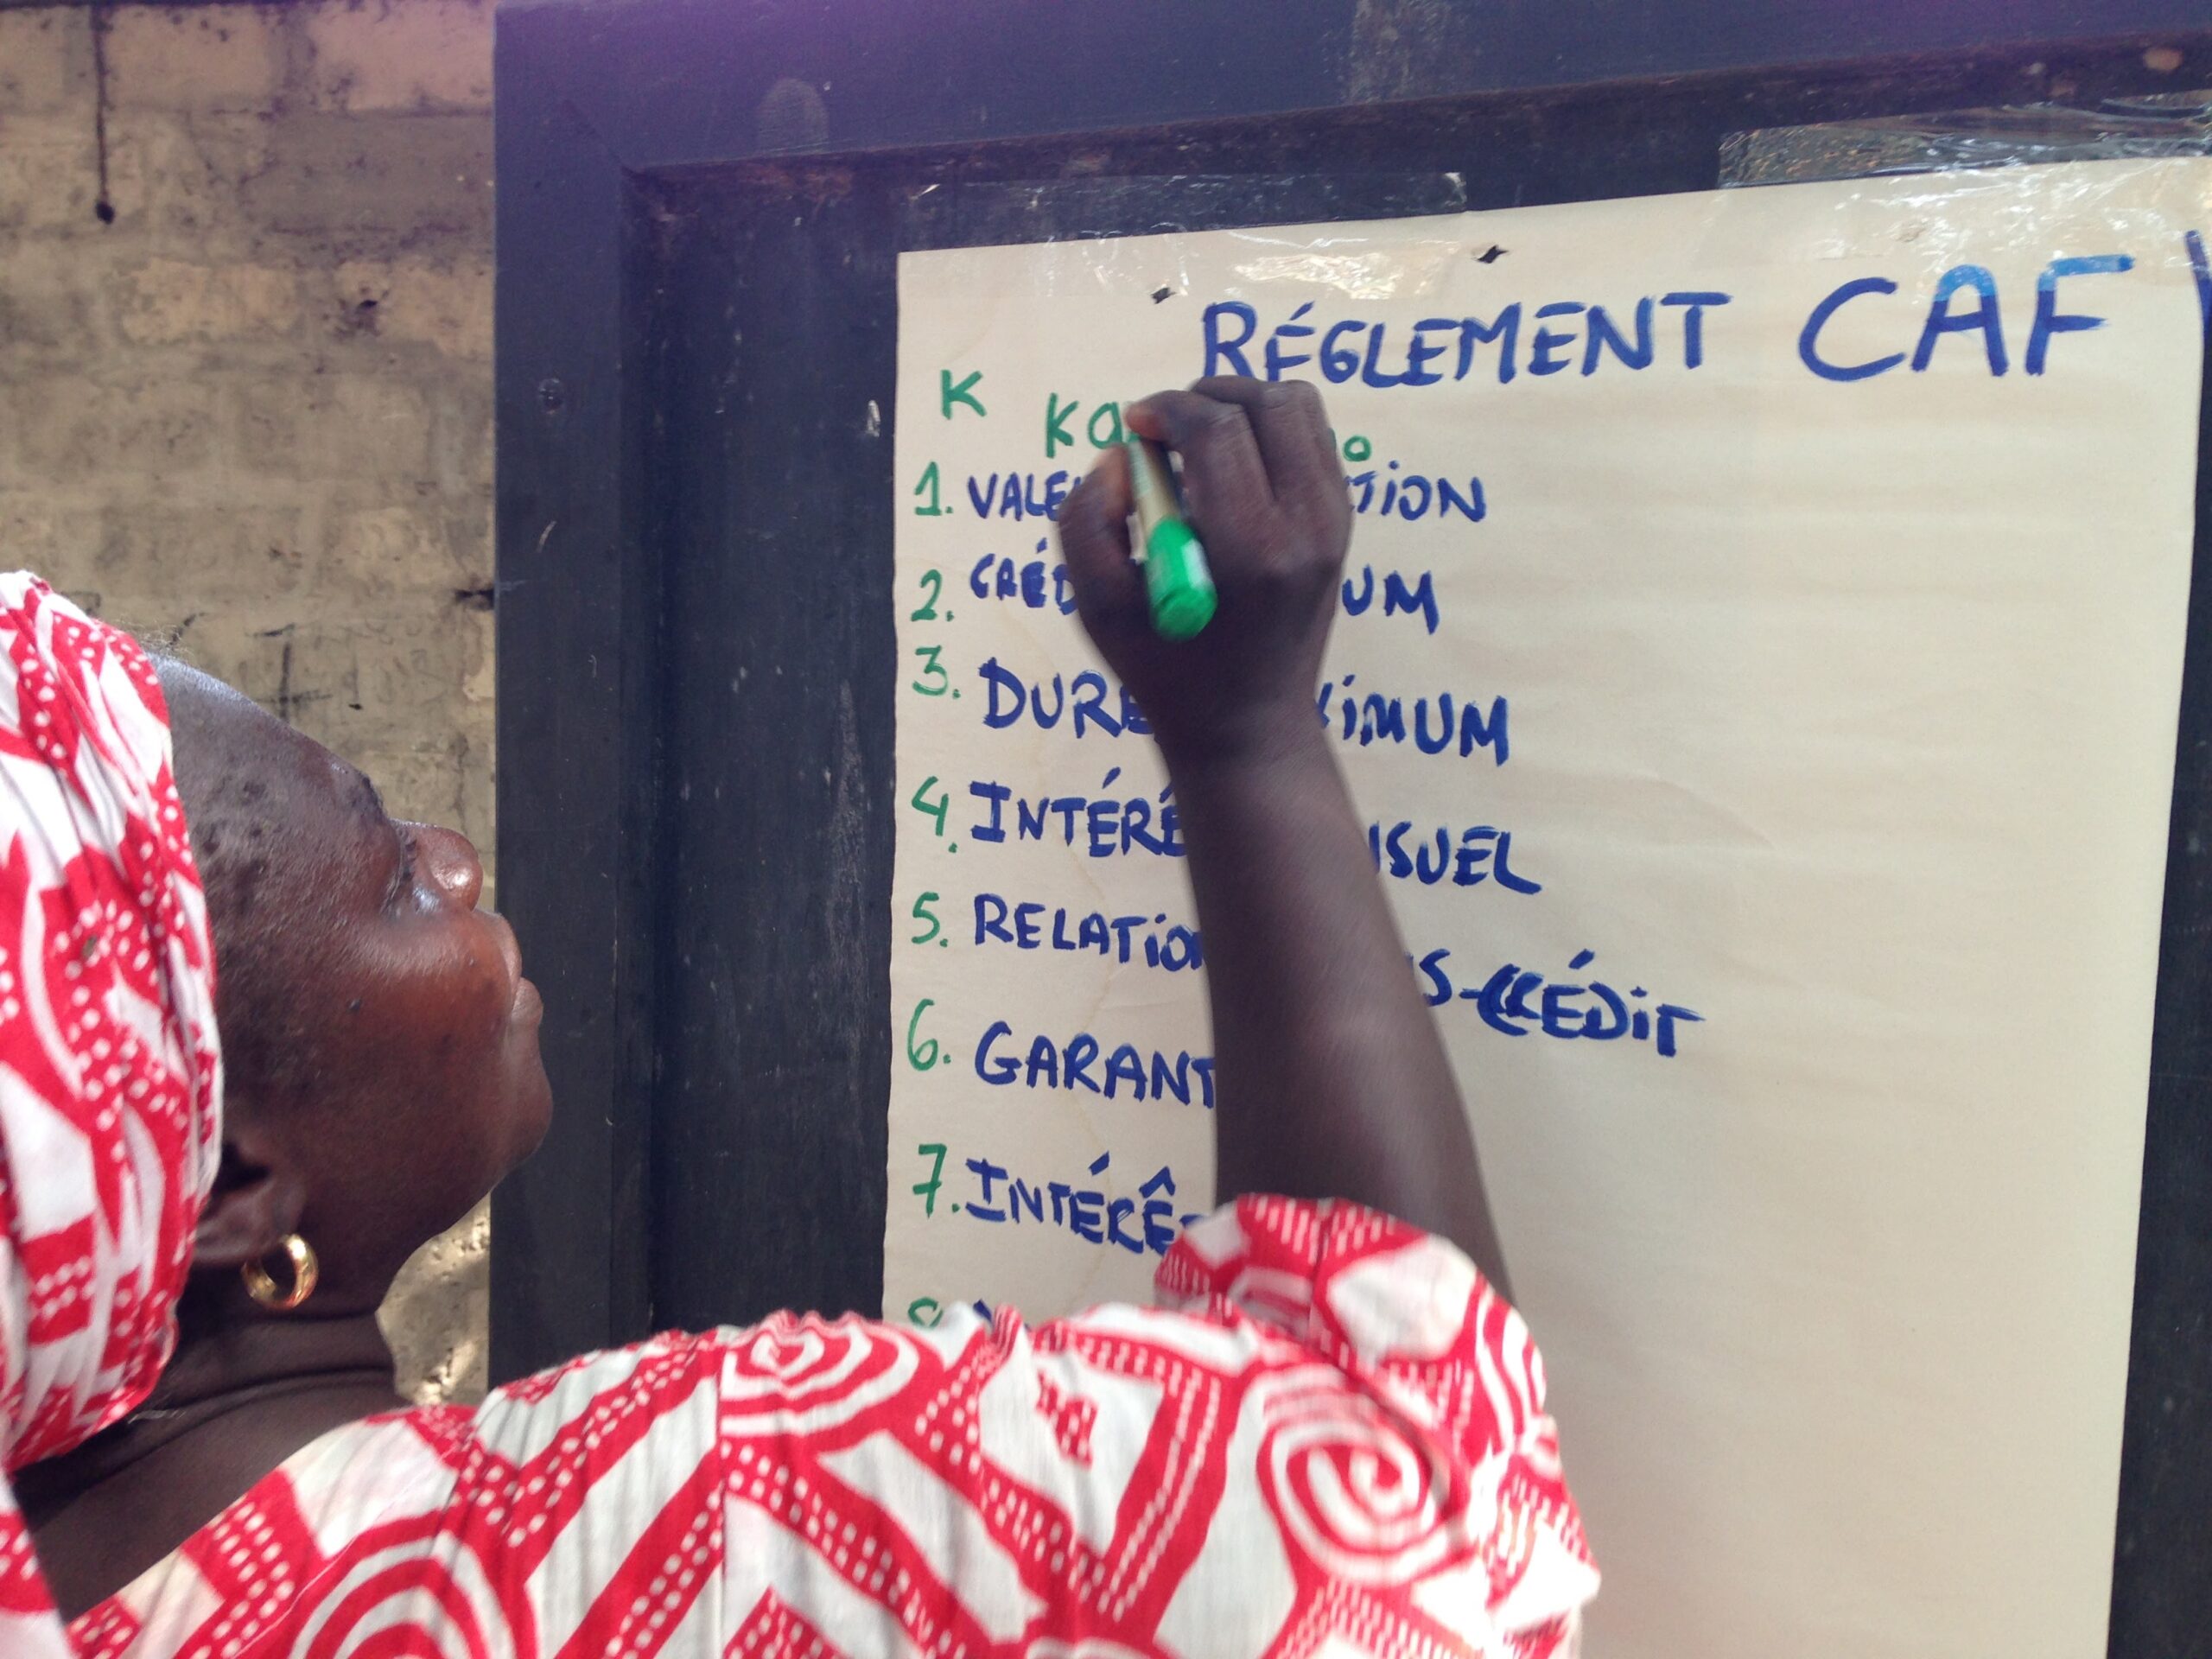 RÉGLEMENT CAF
K
1. VALEU TION
2. CRÉD UM
3. DURÉ XIMUM
4. INTÉRÊ SUEL
5. RELATION S-CRÉDIT
6. GARANT
7. INTÉRÊ